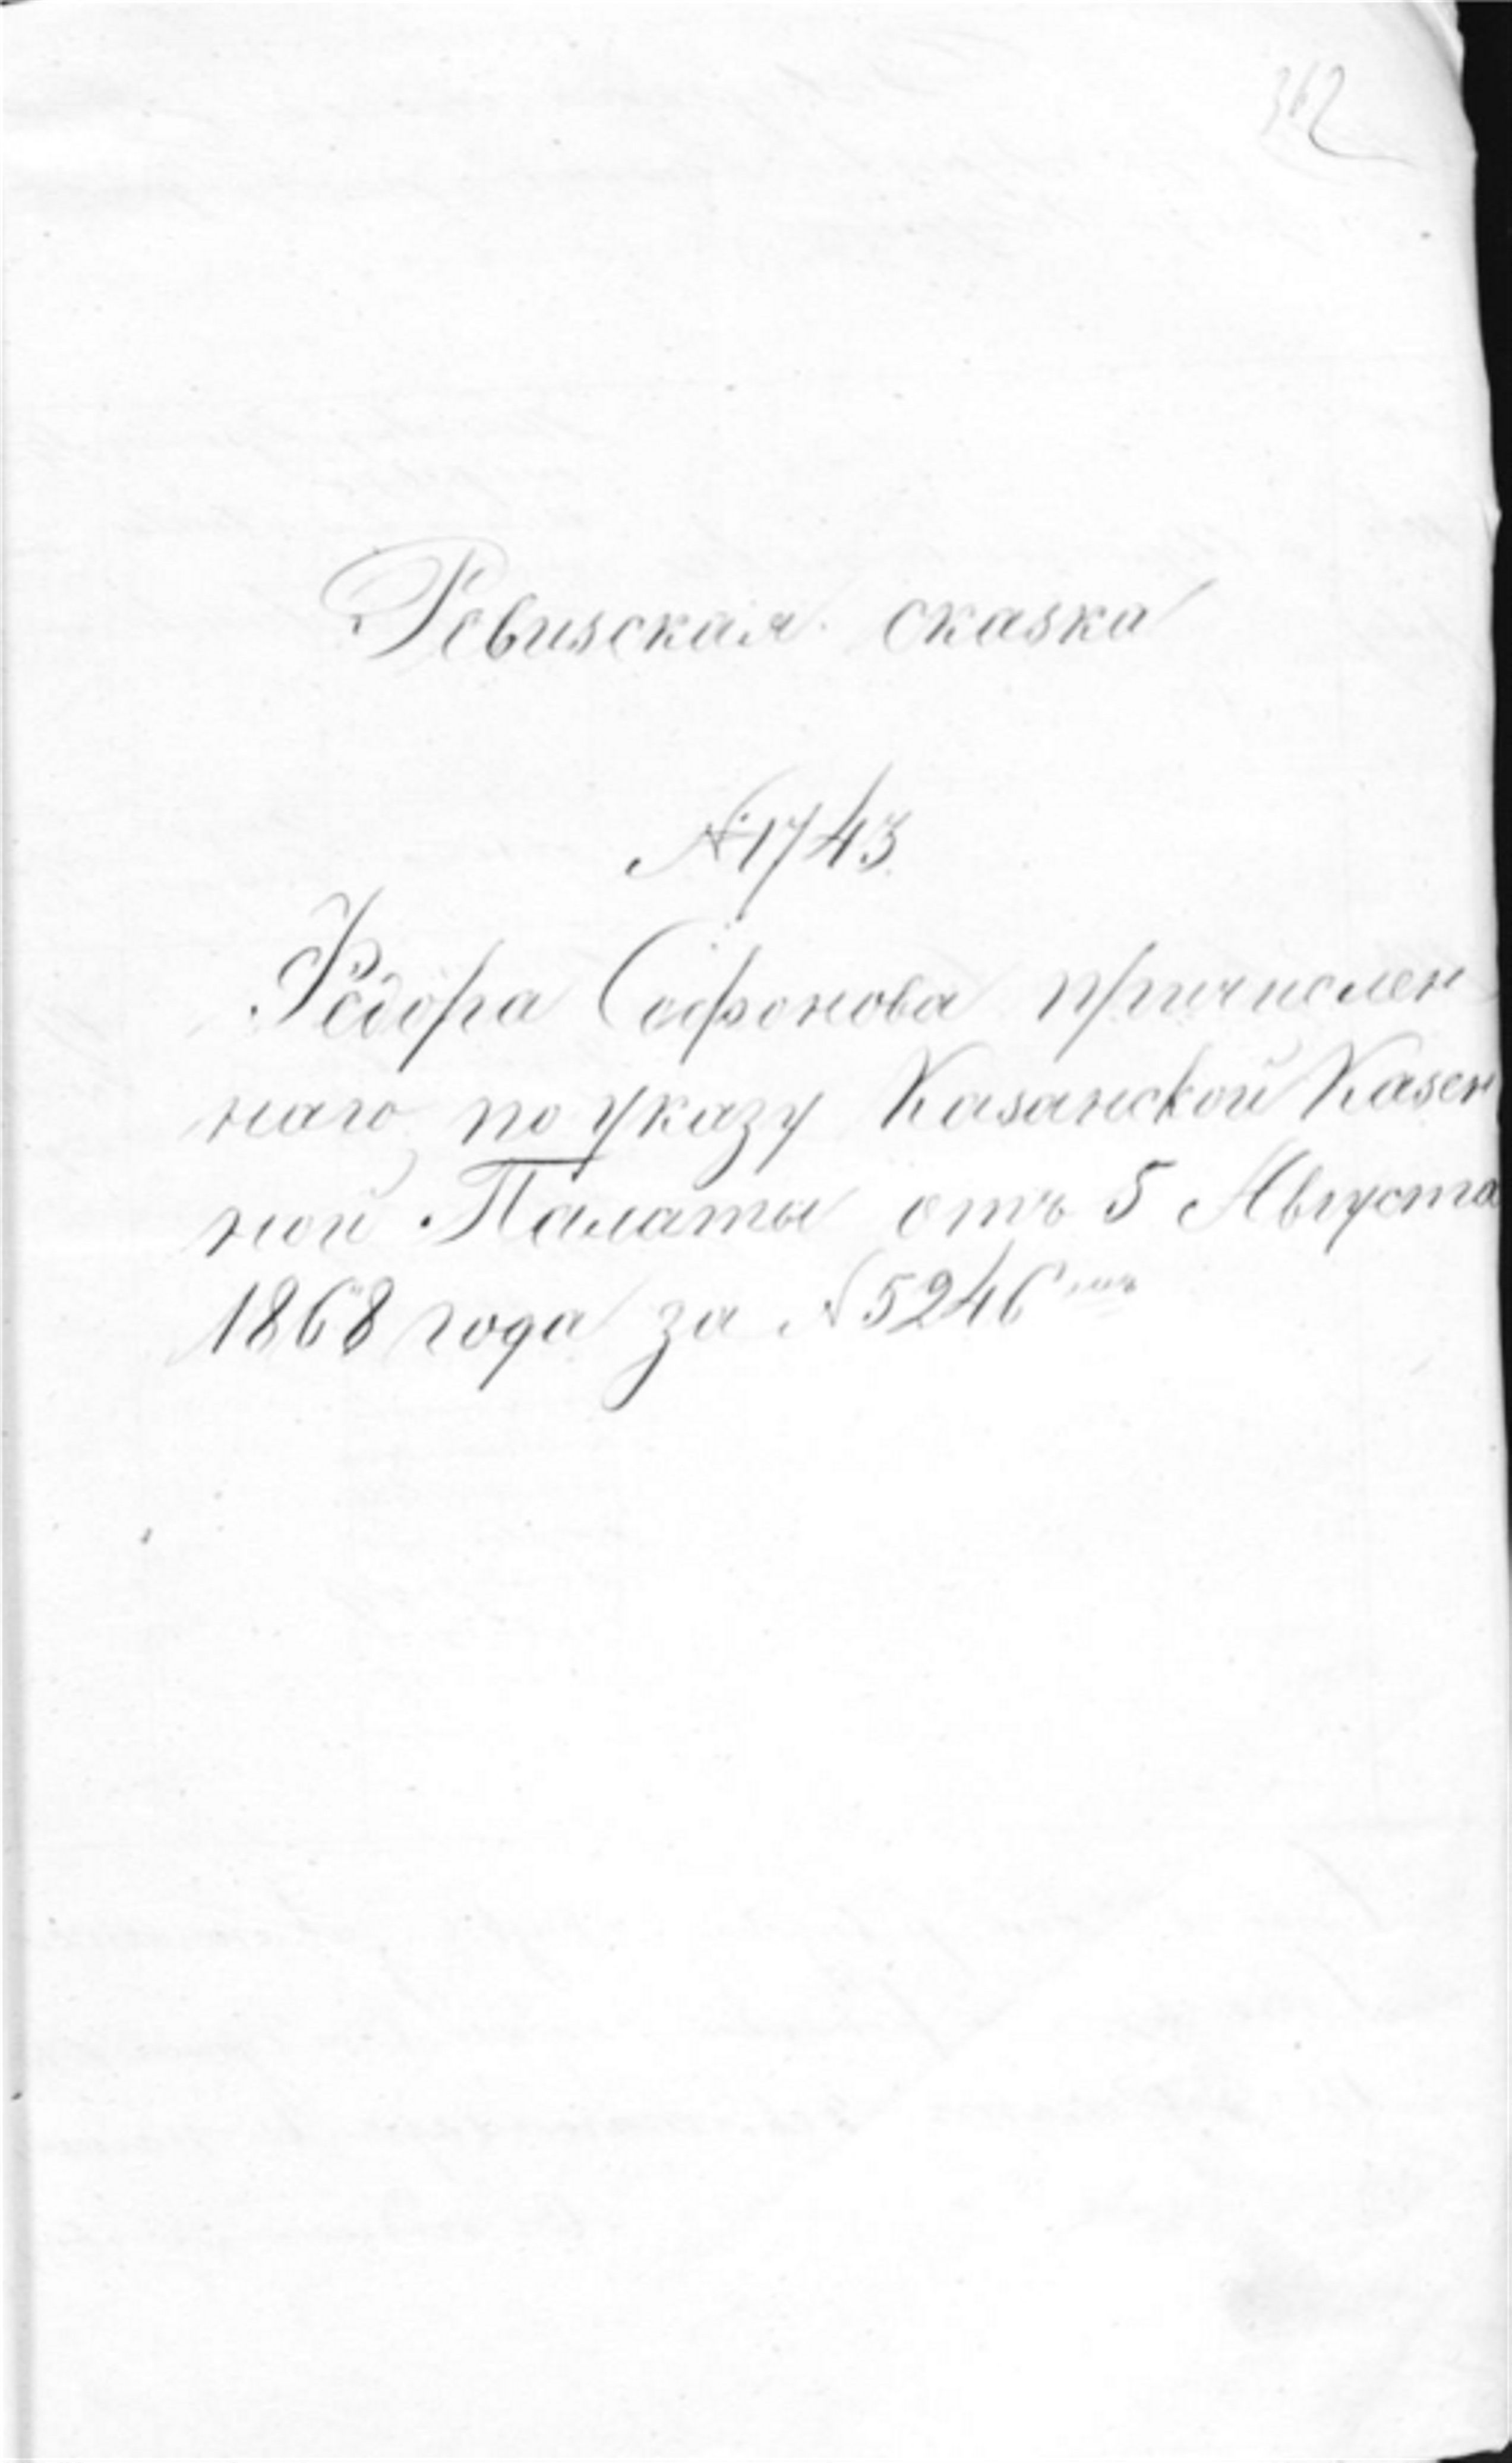 362
Ревизская сказка
№ 1743.
Ѳедора Софонова причислен
наго по указу Казанской Казен
ной Палаты отъ 5 Августа
1868 года за № 5246мъ